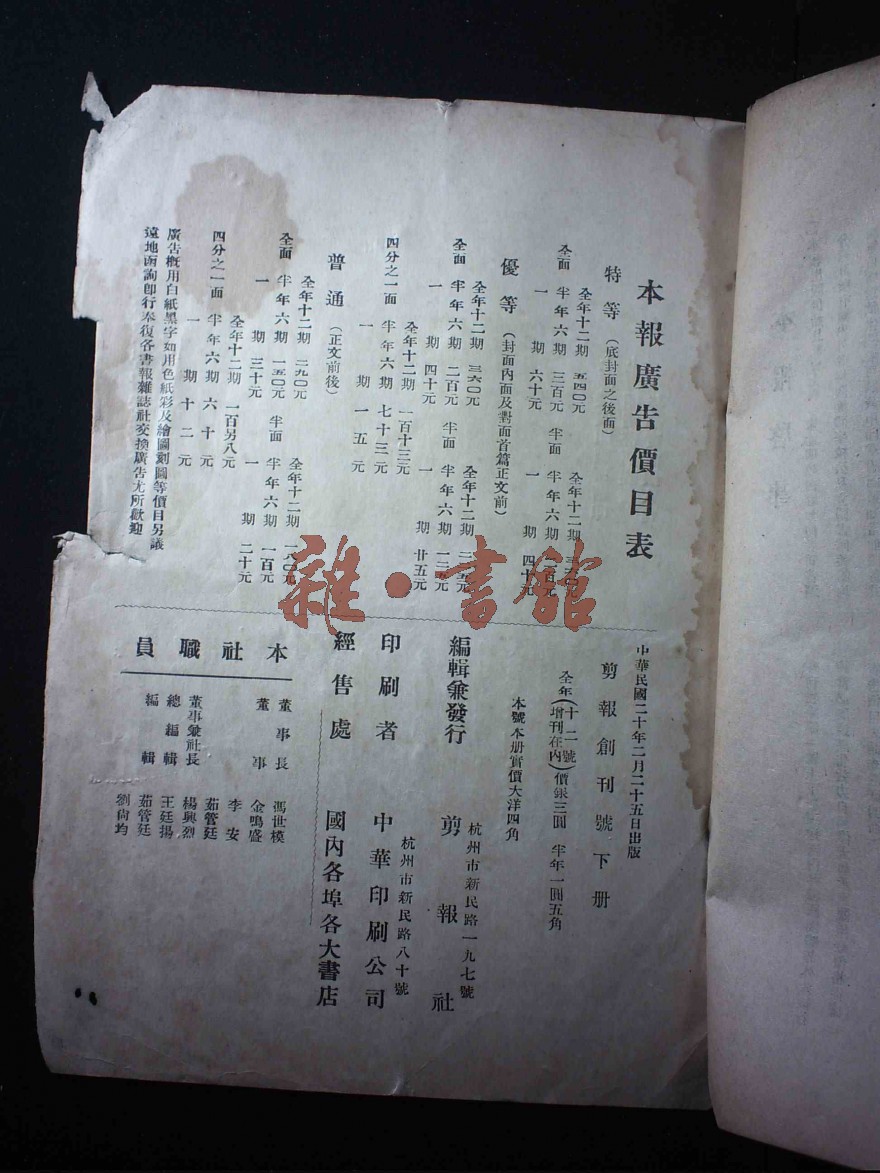 本報廣告價目表
特等(底封面之後面)
全年十二期 五四〇元
全面 半年六期 三百元
一期 六十元
全年十二期 三六〇元
半面 半年六期 二百元
一期 四十元
優等(封面內面及對面首篇正文前)
全年十二期 三六〇元
全面 半年六期 二百元
一期 四十元
全年十二期
半面 半年六期
一期 廿五元
全年十二期 一百十三元
四分之一面 半年六期 七十三元
一期 一五元
普通(正文前後)
全年十二期 二九〇元
全面 半年六期 一五〇元
一期 三十元
全年十二期 一八〇元
半面 半年六期 一百元
一期 二十元
全年十二期 一百另八元
四分之一面 半年六期 六十元
一期 十二元
廣告概用白紙黑字如用色紙彩及繪圖刻圖等價目另議
遠地函詢即行奉復各書報雜誌社交換廣告尤所歡迎
中華民國二十年二月二十五日出版
剪報創刊號下册
全年(十二號增刊在內)價銀三圓 半年一圓五角
本號本册實價大洋四角
編輯兼發行 剪報社
杭州市新民路一九七號
印刷者 中華印刷公司
杭州市新民路八十號
經售處 國內各埠各大書店
本社職員
董事長 馮世模
董事 金鳴盛
李安
茹管廷
董事兼社長 楊興烈
總編輯 王廷揚
編輯 茹管廷
劉尚均
雜·書館